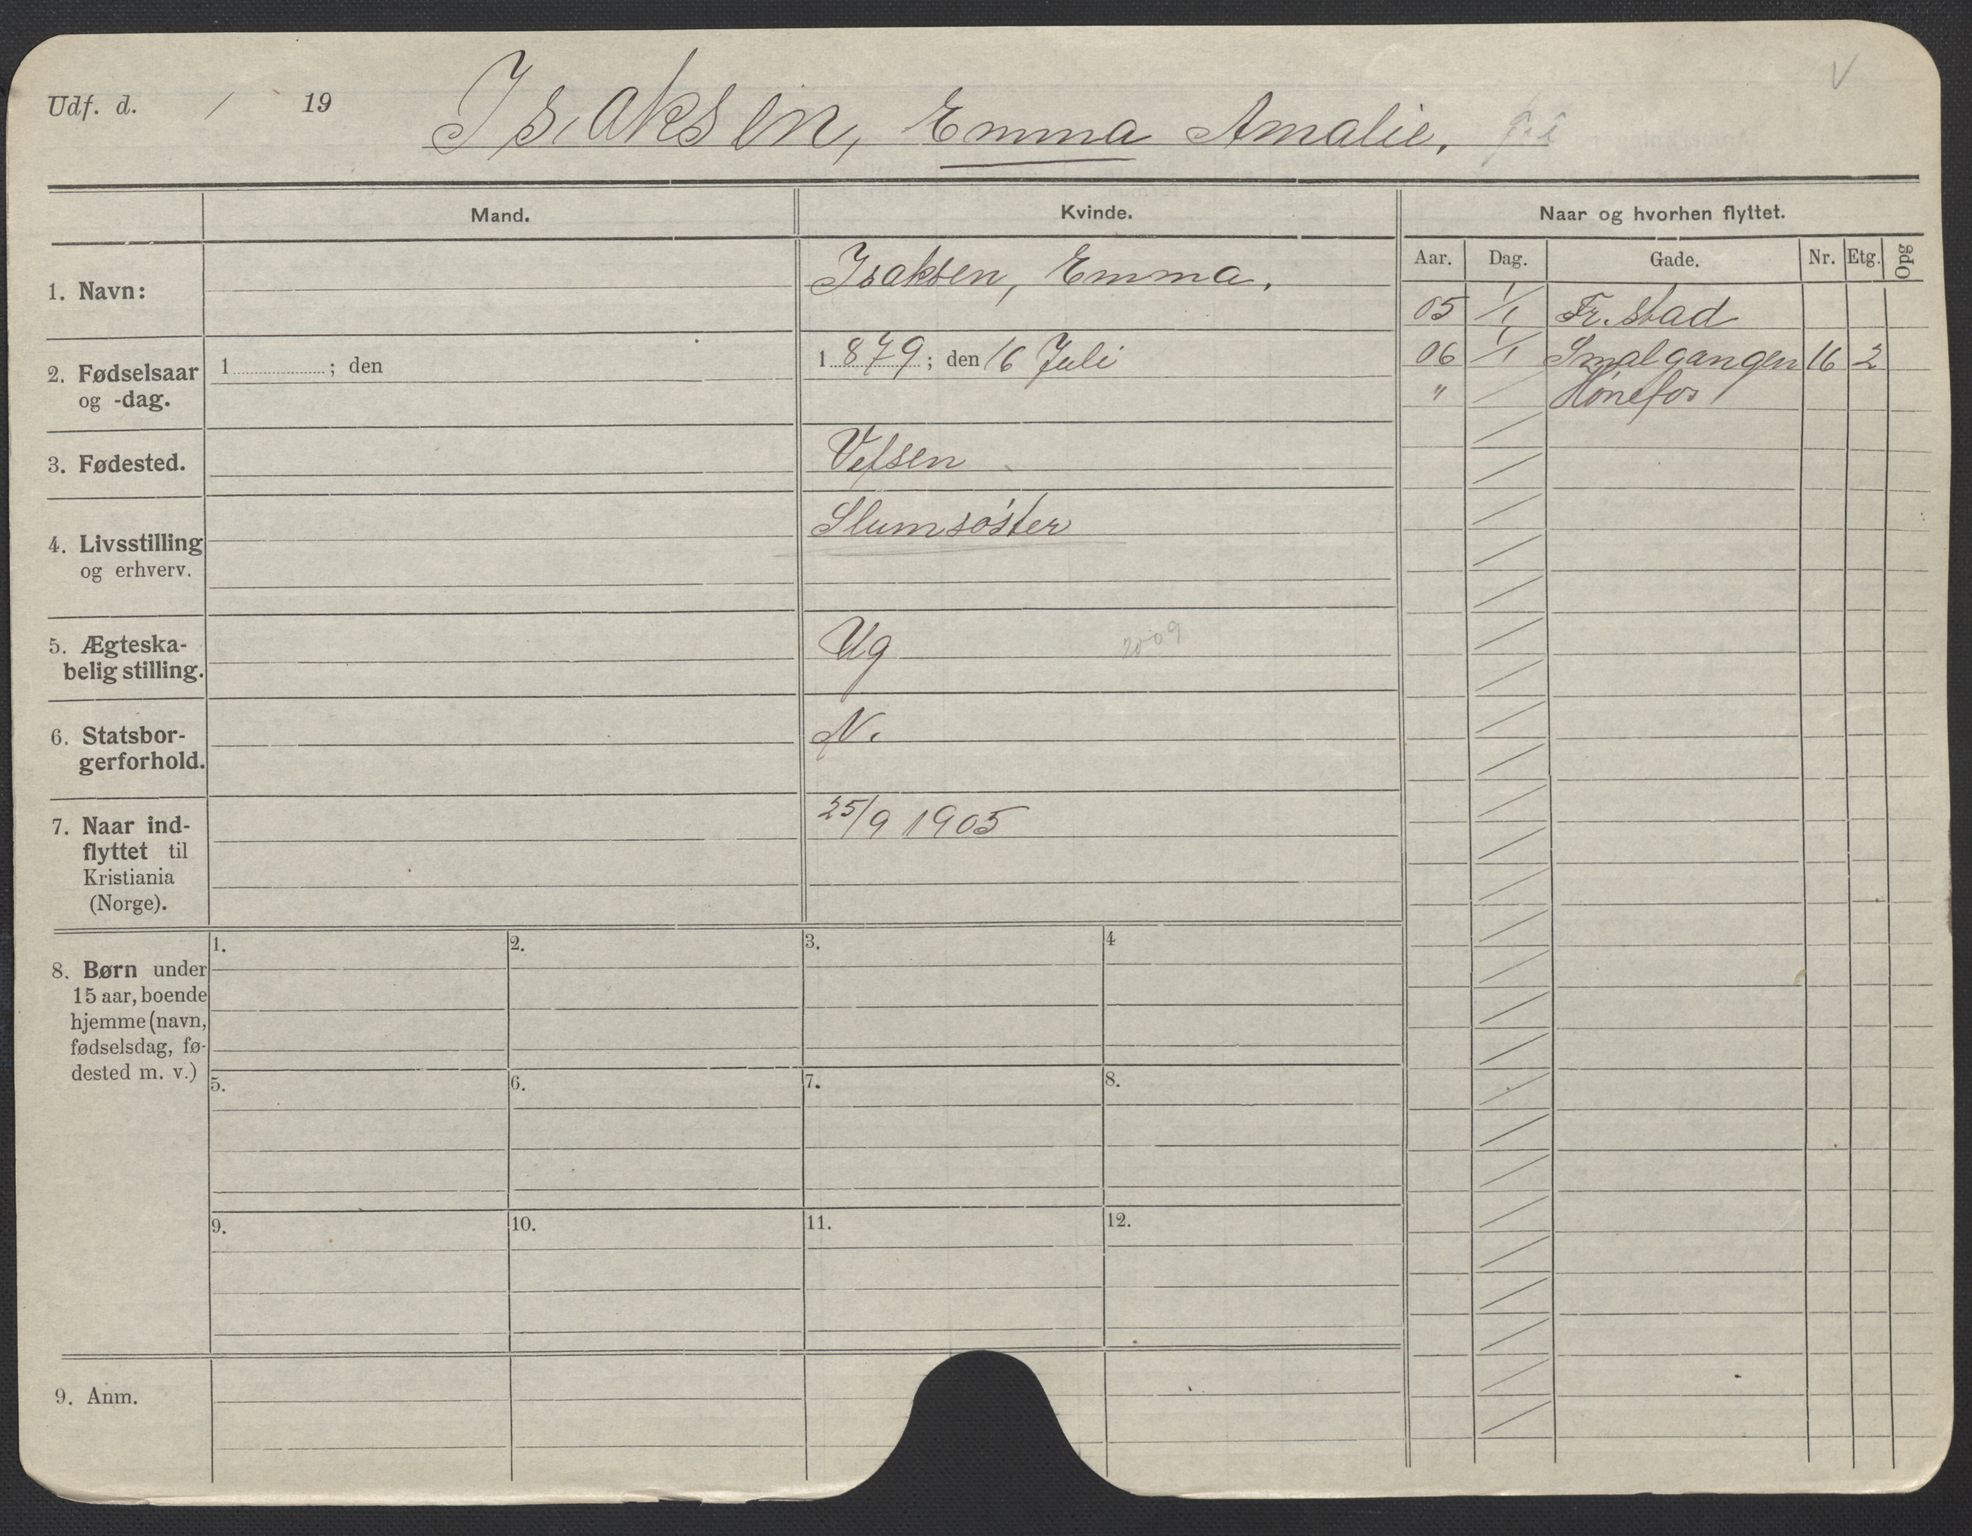 Udf. d. / 19
Isaksen, Emma Amalie.
V
Mand.
Kvinde.
Naar og hvorhen flyttet.
Aar. Dag. Gade. Nr. Etg. Opg
1. Navn:
Isaksen, Emma.
05 1/1 Fr.stad
06 1/1 Smalgangen 16 2
" / Hønefos
2. Fødselsaar
og -dag.
1 ; den
1 879 ; den 16 Juli
3. Fødested.
Vefsen
4. Livsstilling
og erhverv.
Slumsøster
5. Ægteska-
belig stilling.
Ug
6. Statsbor-
gerforhold.
N.
7. Naar ind-
flyttet til
Kristiania
(Norge).
25/9 1905
8. Børn under
15 aar, boende
hjemme (navn,
fødselsdag, fø-
dested m. v.)
1. 2. 3. 4
5. 6. 7. 8.
9. 10. 11. 12.
9. Anm.